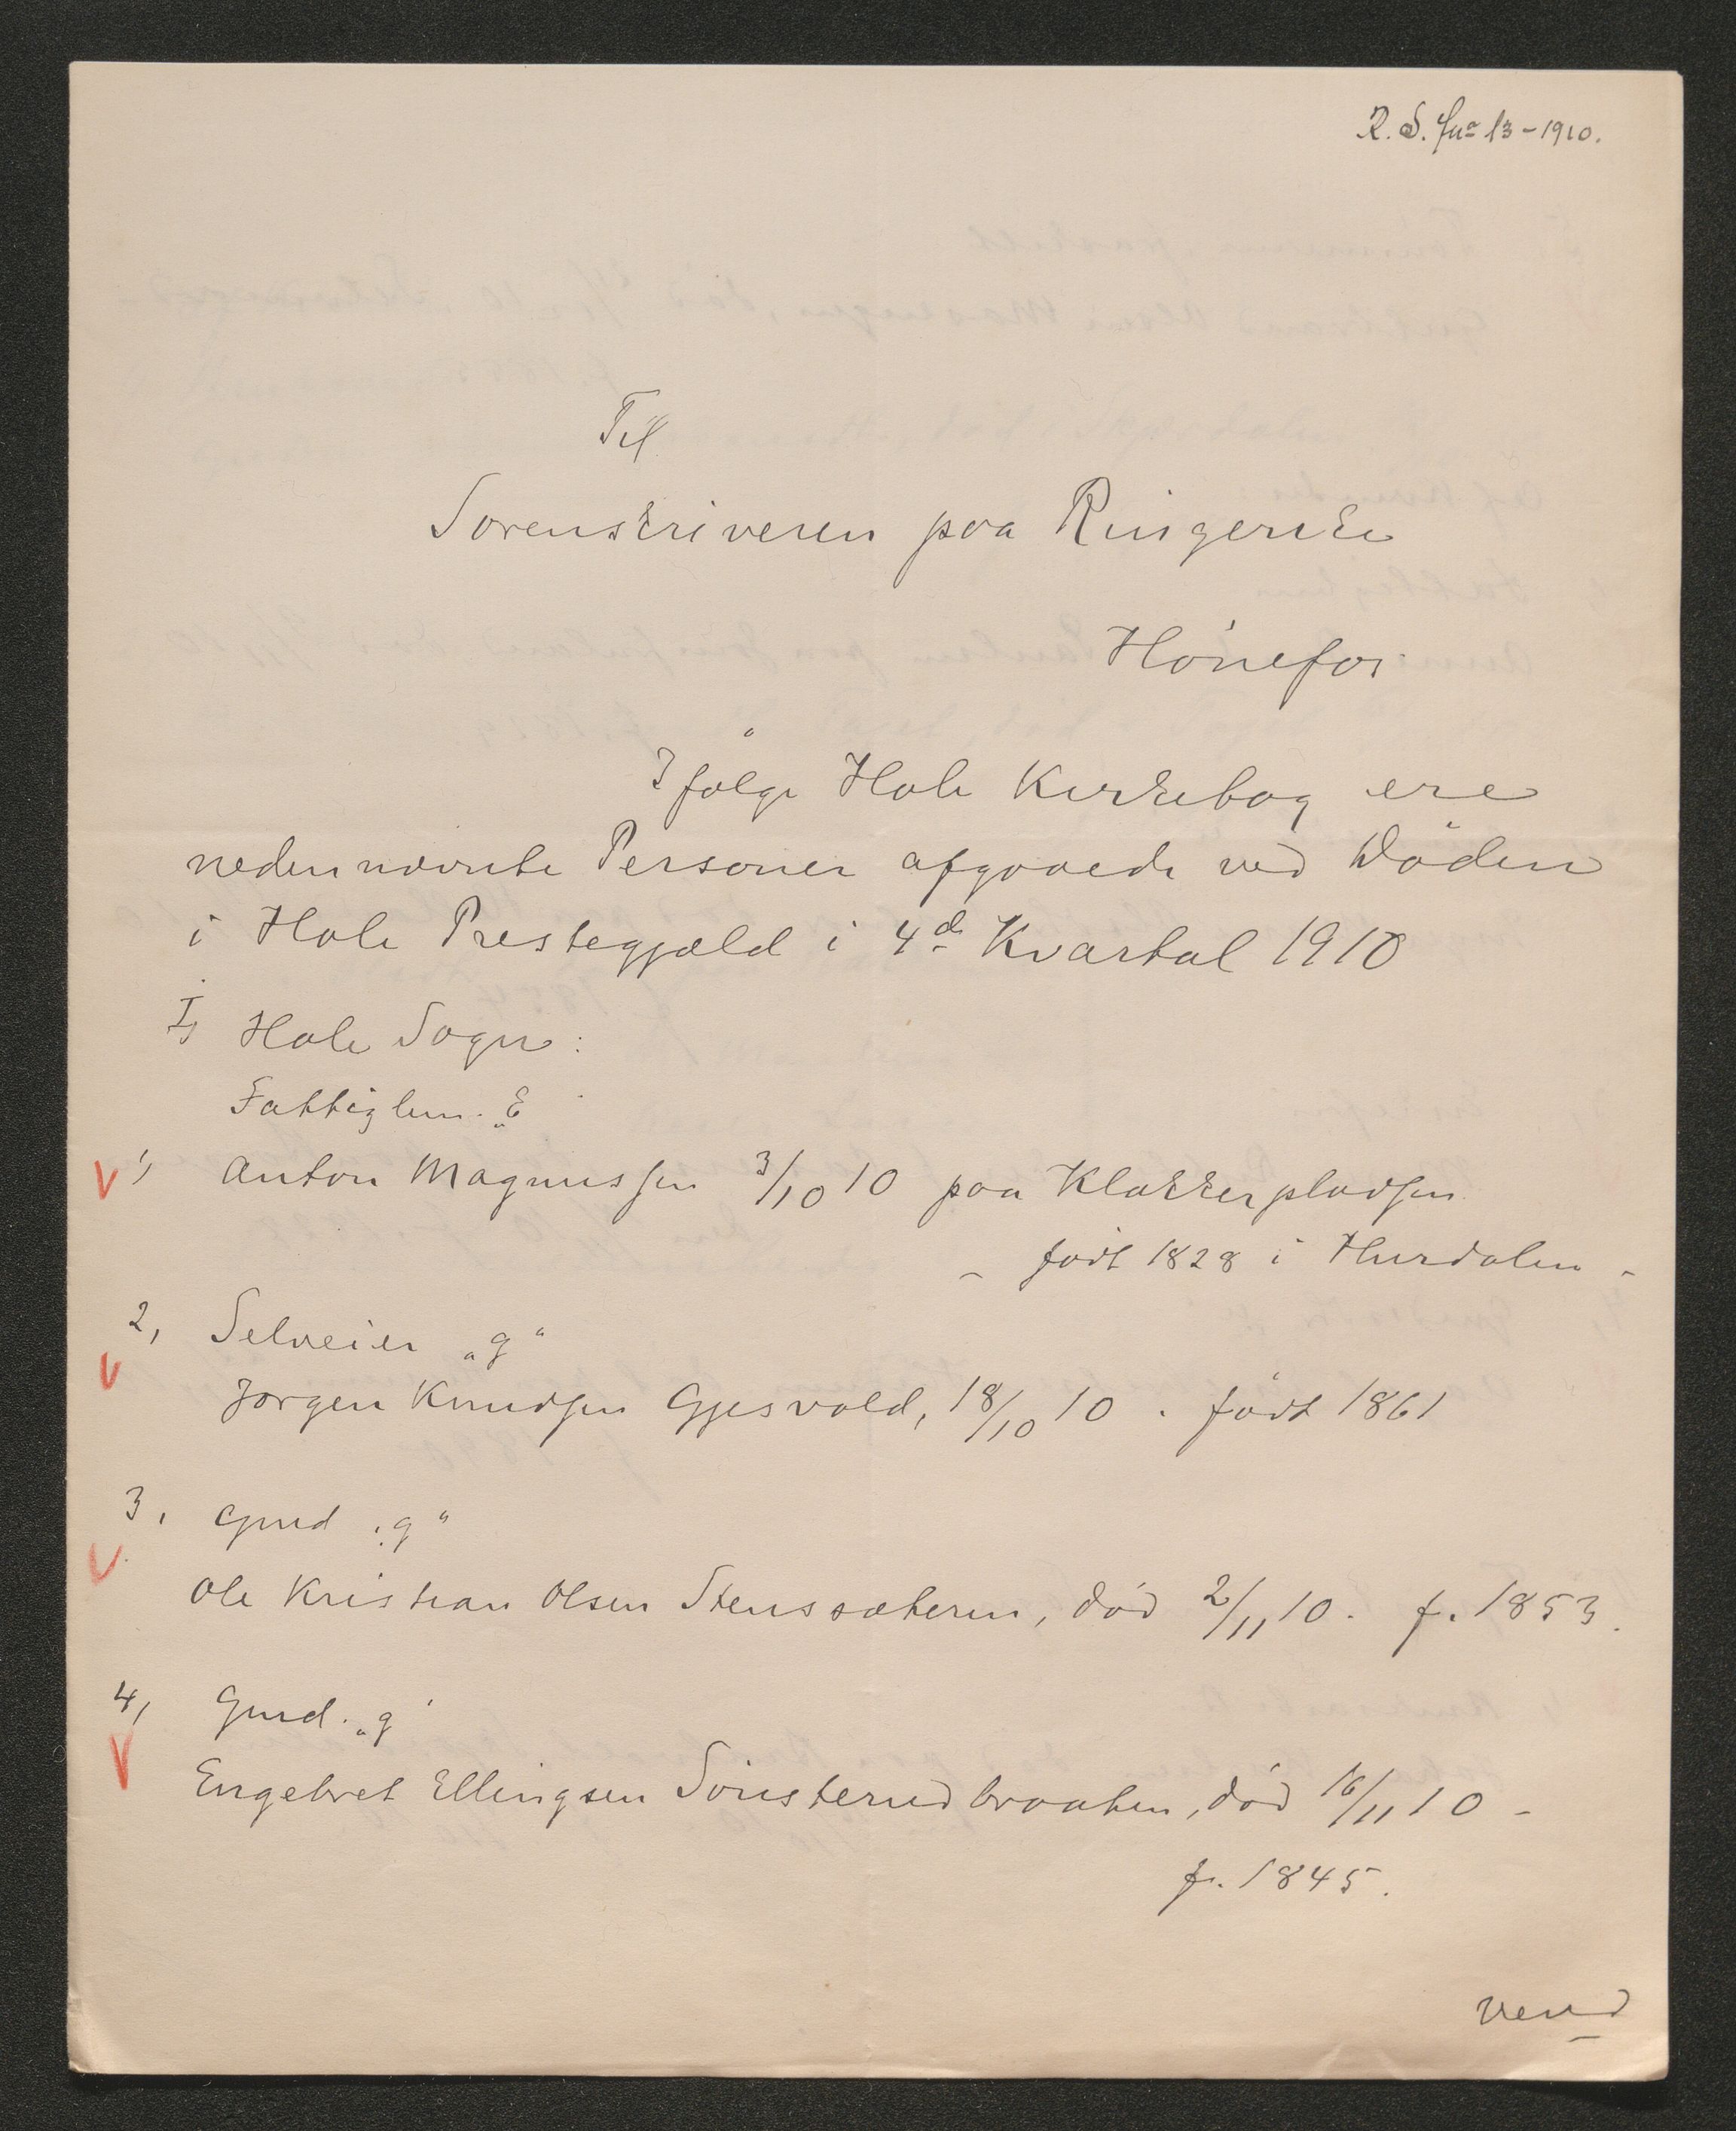 R. S. Jno 13 - 1910.
Til
Sorenskriveren paa Ringerike
Hönefos
Ifølge Hole Kirkebog ere
nedennævnte Personer afgaaede ved Döden
i Hole Prestegjæld i 4de Kvartal 1910
I, Hole Sogn:
Fattiglem. „E
1, Anton Magnussen 3/10 10 paa Klokkerpladsen
- födt 1828 i Hurdalen -
2, Selveier „g"
Jørgen Knudsen Gjesvold, 18/10 10. födt 1861
3, Gmd „g"
Ole Kristian Olsen Stenssæteren, död 2/11 10. f. 1853.
4, Gmd. „g"
Engebret Ellingsen Sönsterudbraaten, död 16/11 10 -
f. 1845.
Vend